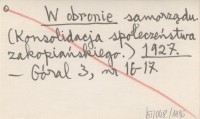 W obronie samorządu
(Konsolidacja społeczeństwa
zakopiańskiego.) 1927.
— Góral 3, nr 16-17.